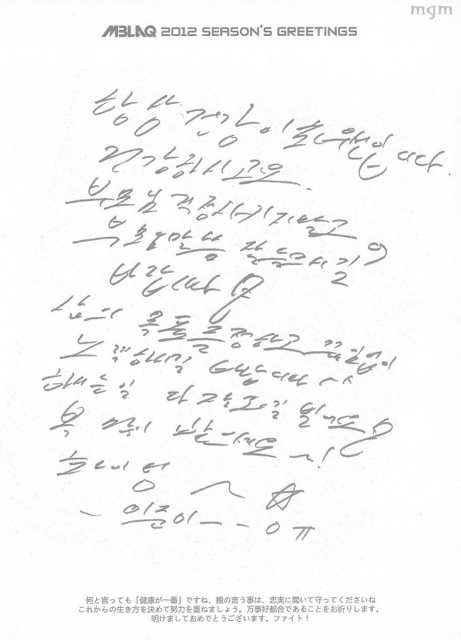 mgm
MBLAQ 2012 SEASON'S GREETINGS
항상 건강이 최우선입니다.
건강하시고요.
부모님 걱정시키지말고
부모님말씀 잘들으시길
바랍니다
삶의 목표를 정하고 끊임없이
노력하시길 바랍니다 ^^
하는일 다 잘되길 빌게요
복 많이 받으세요 ~!
화이팅
何と言っても「健康が一番」ですね、親の言う事は、忠実に聞いて守ってくださいね
これからの生き方を決めて努力を重ねましょう。万事好都合であることをお祈りします。
明けましておめでとうございます。ファイト！